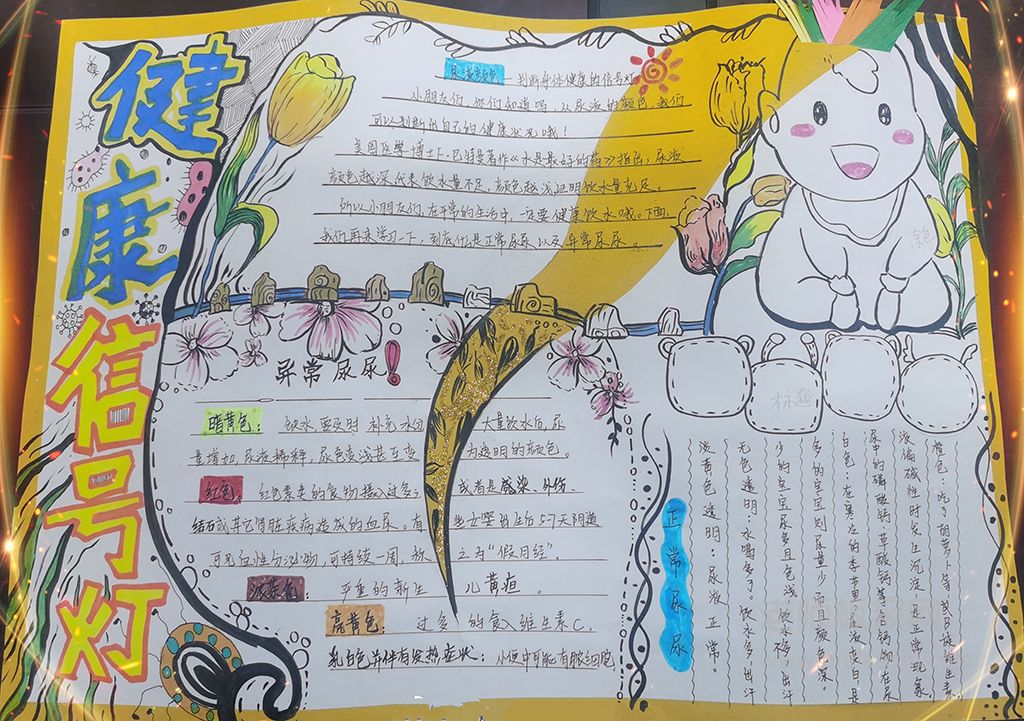 健康信号灯
尿液颜色—判断身体健康的信号灯
小朋友们,你们知道吗,从尿液的颜色,我们
可以判断出自己的健康状况哦!
美国医学博士F·巴特曼著作《水是最好的药》指出,尿液
颜色越深代表饮水量不足,颜色越浅证明饮水量充足。
所以小朋友们,在平常的生活中,一定要健康饮水哦。下面,
我们再来学习一下,到底什么是正常尿尿以及异常尿尿。
涂色
异常尿尿!
标题
暗黄色: 饮水要及时补充水分 大量饮水后,尿
量增加,尿液稀释,尿色变浅甚至变 为透明的颜色。
红色: 红色素类的食物摄入过多; 或者是感染、外伤、
结石或其它肾脏疾病造成的血尿。有 些女婴出生后5-7天阴道
可见白性分泌物,可持续一周,称 之为“假月经”。
浓茶色: 严重的新生 儿黄疸。
亮黄色: 过多的食入维生素C.
乳白色并伴有发热症状: 小便中可能有脓细胞
正常尿尿
淡黄色透明:尿液正常。
无色透明:水喝多了。饮水多、出汗
少的宝宝尿多且色浅,饮水不够、出汗
多的宝宝则尿量少,而且颜色深。
白色:在寒冷的季节里,尿液变白是
尿中的磷酸钙、草酸钙等含钙物在尿
液偏碱性时发生沉淀,是正常现象。
橙色:吃了胡萝卜等或B族维生素。